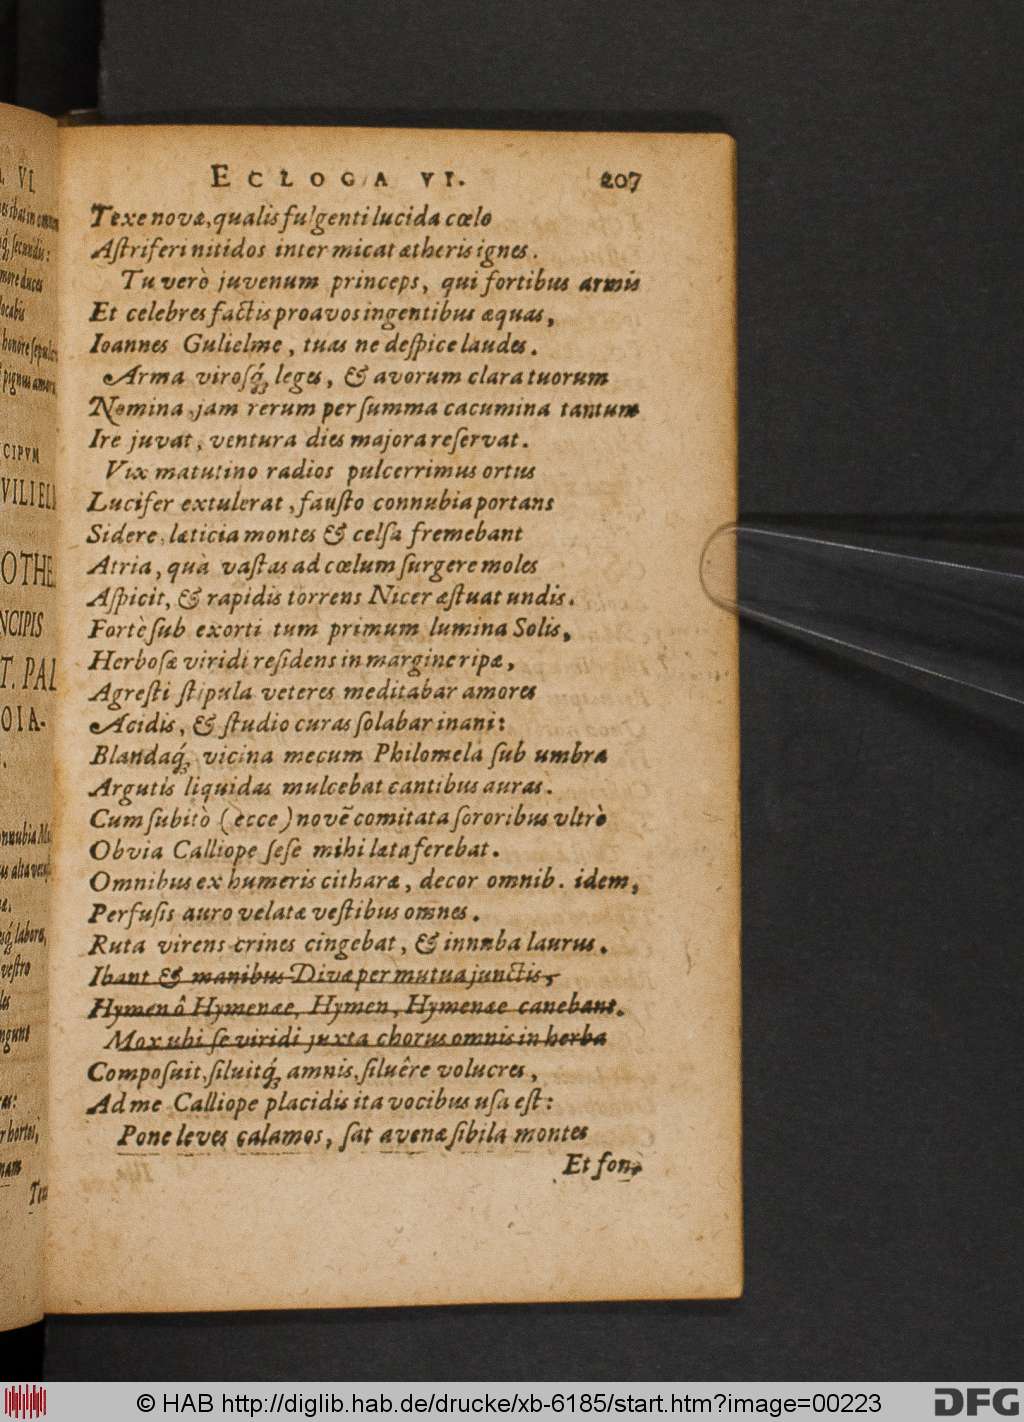 ECLOGA VI. 207
Texe novæ, qualis fulgenti lucida cœlo
Aſtriferi nitidos inter micat ætheris ignes.
Tu verò juvenum princeps, qui fortibus armis
Et celebres factis proavos ingentibus æquas,
Ioannes Gulielme, tuas ne deſpice laudes.
Arma viroſq́; leges, & avorum clara tuorum
Nomina jam rerum per ſumma cacumina tantum
Ire juvat, ventura dies majora reſervat.
Vix matutino radios pulcerrimus ortus
Lucifer extulerat, fauſto connubia portans
Sidere, lætitia montes & celſa fremebant
Atria, quà vaſtas ad cœlum ſurgere moles
Aſpicit, & rapidis torrens Nicer æſtuat undis.
Fortè ſub exorti tum primum lumina Solis,
Herboſæ viridi reſidens in margine ripæ,
Agreſti ſtipula veteres meditabar amores
Acidis, & ſtudio curas ſolabar inani:
Blandaq́; vicina mecum Philomela ſub umbra
Argutis liquidas mulcebat cantibus auras.
Cum ſubitò (ecce) novē comitata ſororibus vltrò
Obvia Calliope ſeſe mihi læta ferebat.
Omnibus ex humeris citharæ, decor omnib. idem,
Perfuſis auro velatæ veſtibus omnes.
Ruta virens crines cingebat, & innuba laurus.
Ibant & manibus Divæ per mutua junctis,
Hymen ô Hymenæe, Hymen, Hymenæe canebant.
Mox ubi ſe viridi juxta chorus omnis in herba
Compoſuit, ſiluitq́; amnis, ſiluêre volucres,
Ad me Calliope placidis ita vocibus uſa eſt:
Pone leves calamos, ſat avenæ ſibila montes
Et fon-
© HAB http://diglib.hab.de/drucke/xb-6185/start.htm?image=00223
DFG